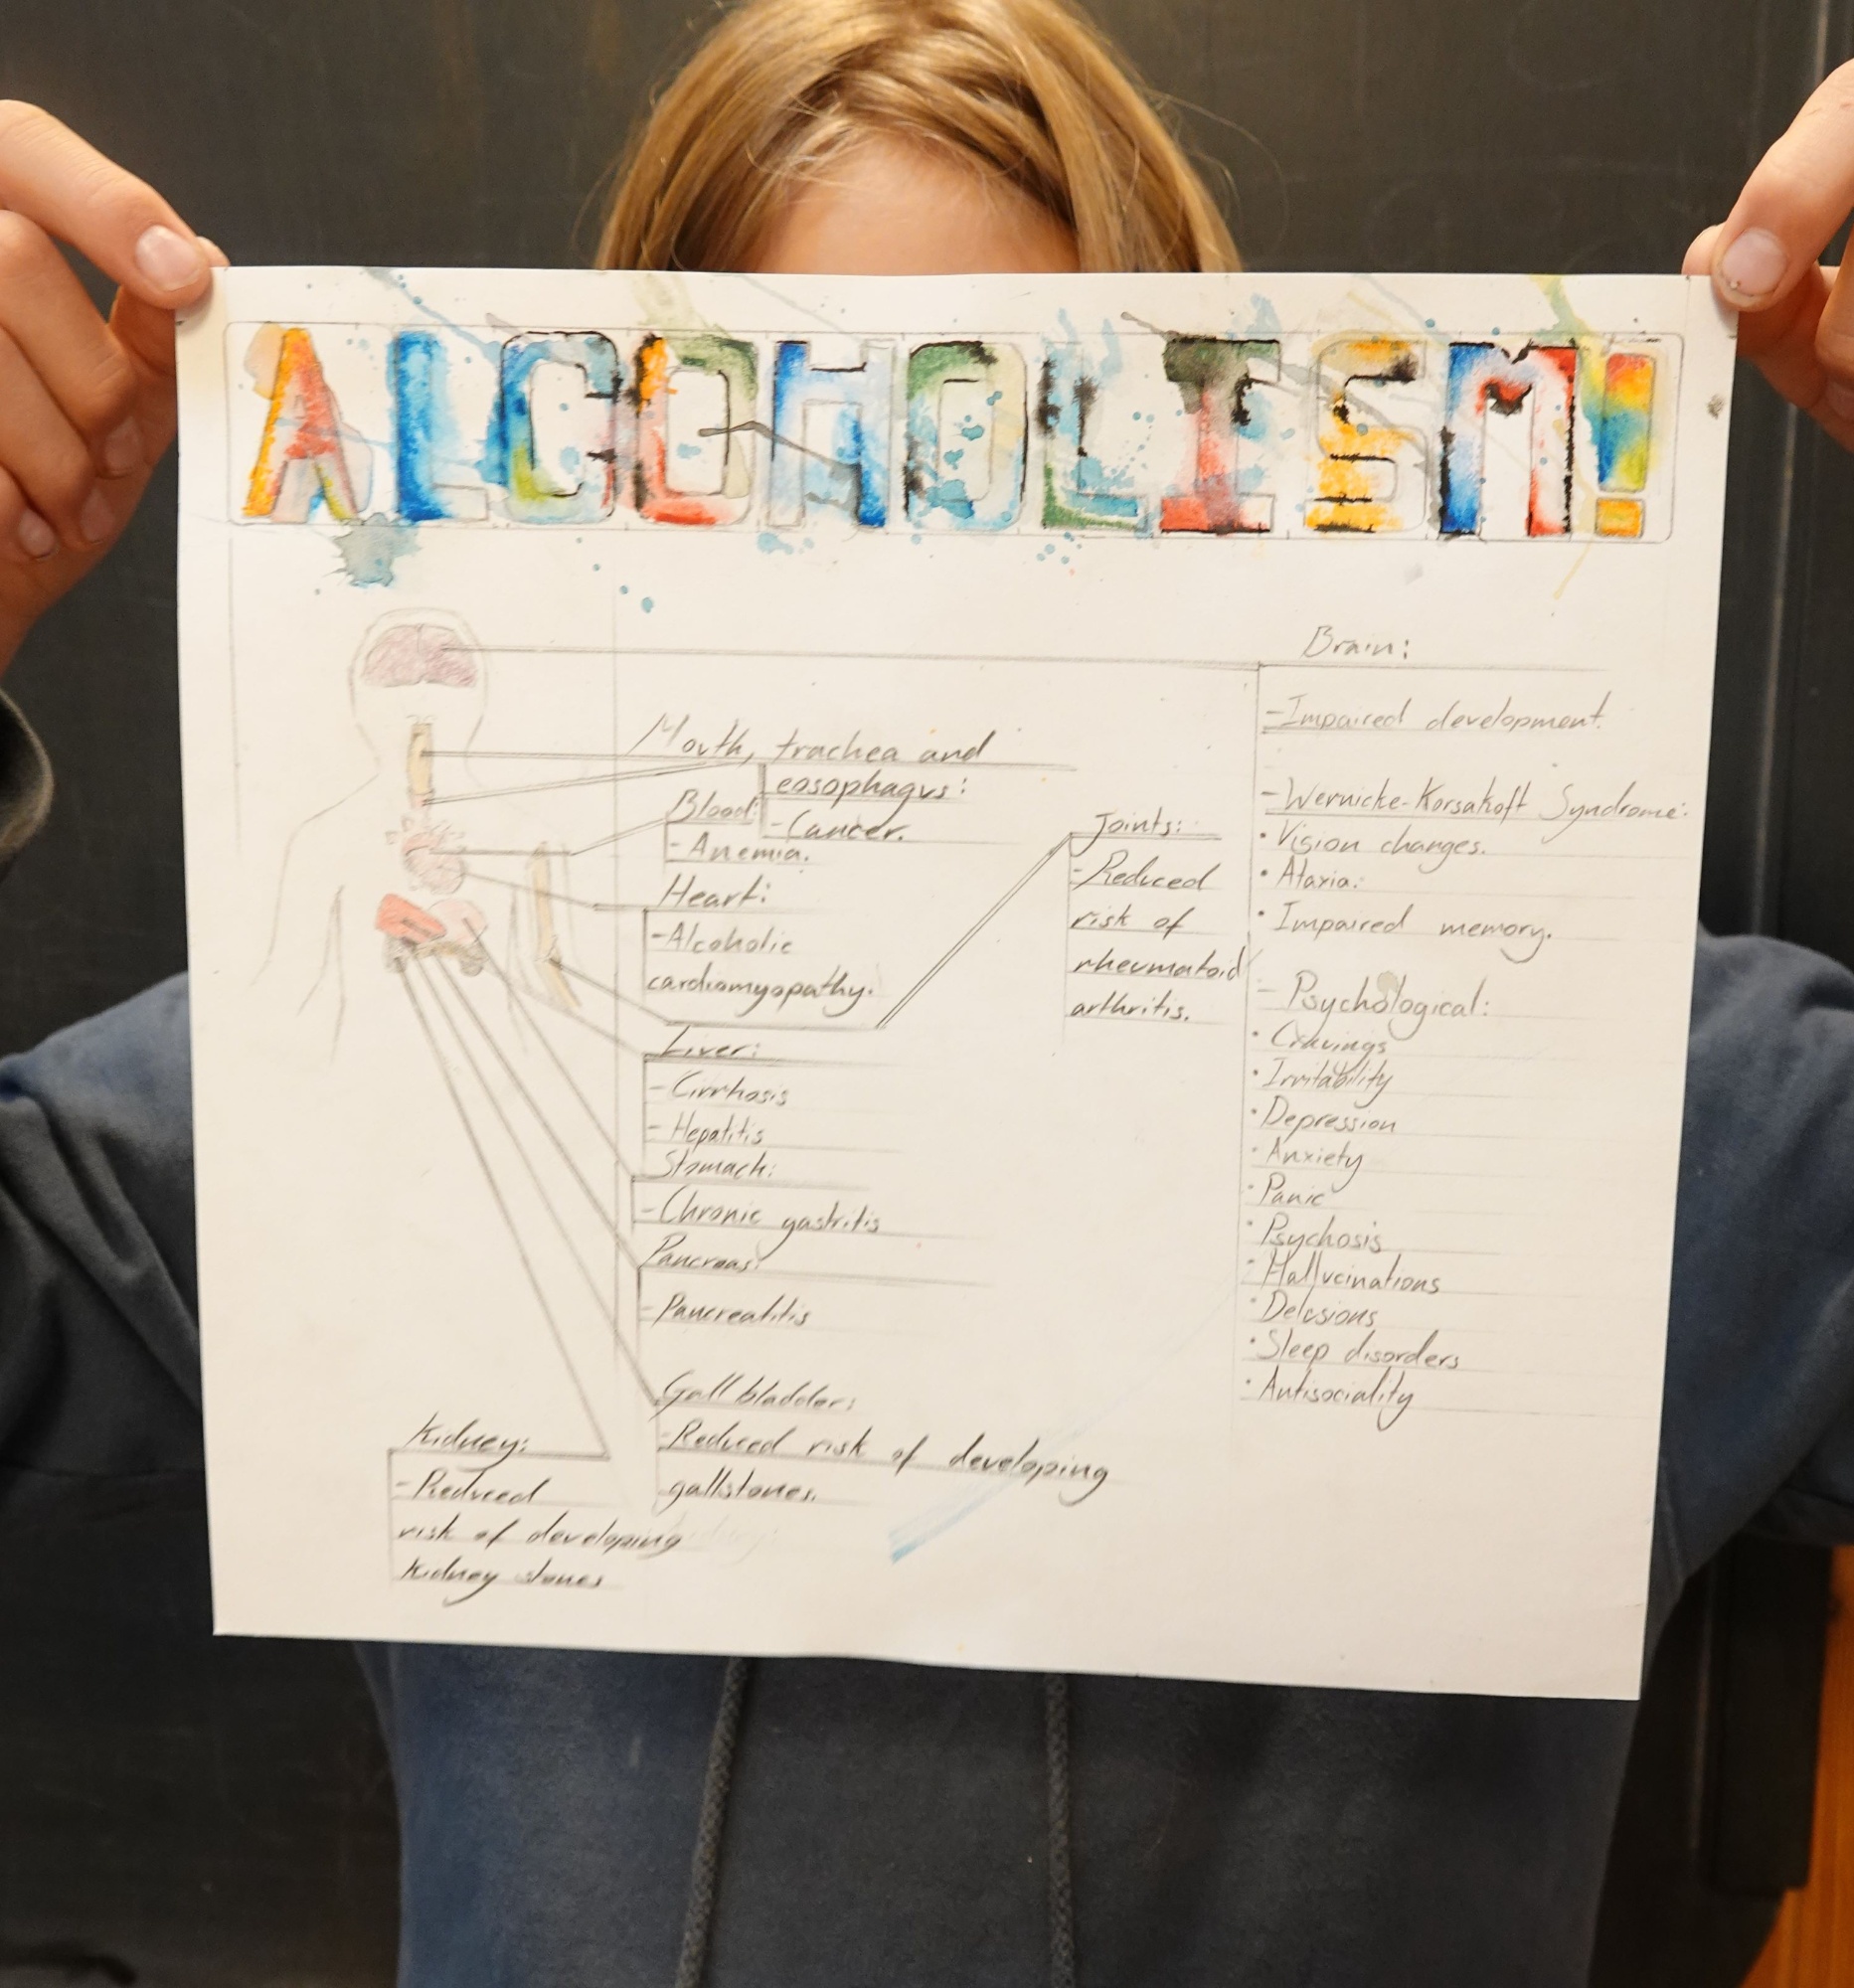 ALCOHOLISM!
Brain:
-Impaired development.
-Wernicke-Korsakoff Syndrome:
• Vision changes.
• Ataxia.
• Impaired memory.
- Psychological:
• Cravings
• Irritability
• Depression
• Anxiety
• Panic
• Psychosis
• Hallucinations
• Delusions
• Sleep disorders
• Antisociality
Mouth, trachea and
eosophagus:
- Cancer.
Blood:
- Anemia.
Joints:
- Reduced
risk of
rheumatoid
arthritis.
Heart:
-Alcoholic
cardiomyopathy.
Liver:
- Cirrhosis
- Hepatitis
Stomach:
- Chronic gastritis
Pancreas:
- Pancreatitis
Gall bladder:
-Reduced risk of developing
gallstones.
Kidney:
- Reduced
risk of developing
kidney stones